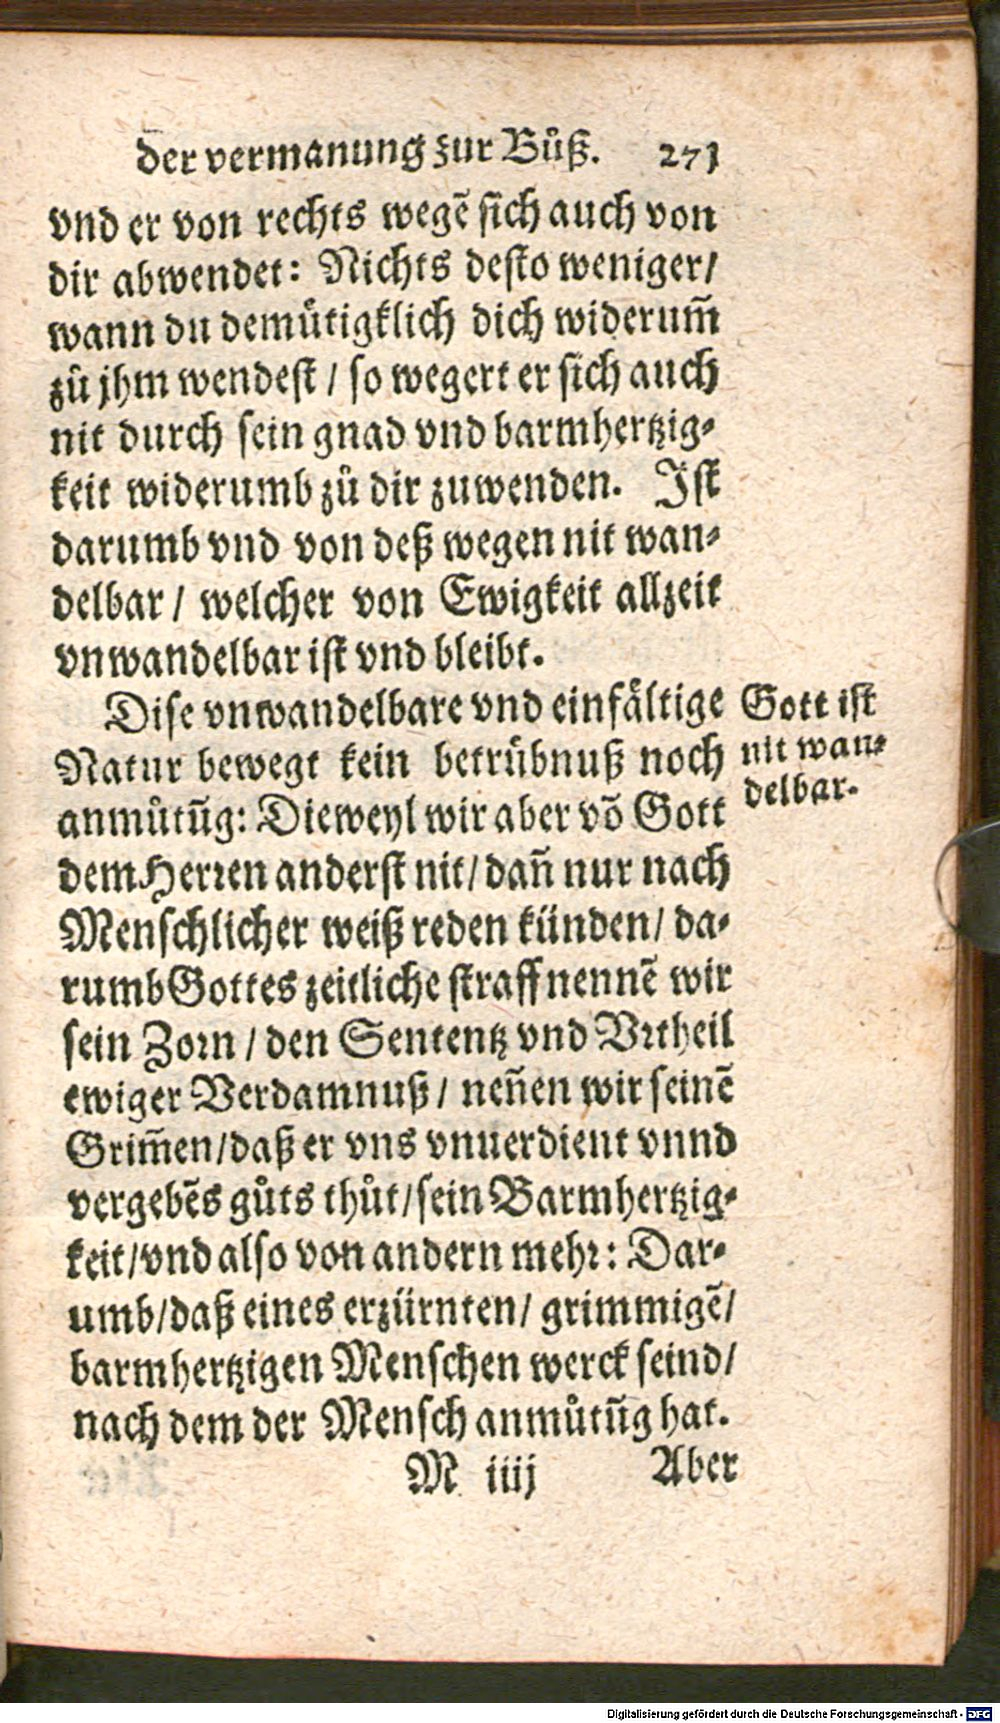 der vermanung zur Bůß. 271
vnd er von rechts wegē sich auch von
dir abwendet: Nichts desto weniger/
wann du demütigklich dich widerum̄
zů jhm wendest / so wegert er sich auch
nit durch sein gnad vnd barmhertzig⸗
keit widerumb zů dir zuwenden. Ist
darumb vnd von deß wegen nit wan⸗
delbar / welcher von Ewigkeit allzeit
vnwandelbar ist vnd bleibt.
Dise vnwandelbare vnd einfältige
Natur bewegt kein betrübnuß noch
anmůtūg: Dieweyl wir aber vō Gott
dem Herren anderst nit/ dañ nur nach
Menschlicher weiß reden künden/ da⸗
rumb Gottes zeitliche straff nennē wir
sein Zorn / den Sententz vnd Vrtheil
ewiger Verdamnuß / neñen wir seinē
Grim̄en/daß er vns vnuerdient vnnd
vergebēs gůts thůt/sein Barmhertzig⸗
keit/vnd also von andern mehr: Dar⸗
umb/daß eines erzürnten/ grimmigē/
barmhertzigen Menschen werck seind/
nach dem der Mensch anmůtūg hat.
M iiij Aber
Gott ist
nit wan⸗
delbar.
Digitalisierung gefördert durch die Deutsche Forschungsgemeinschaft - DFG